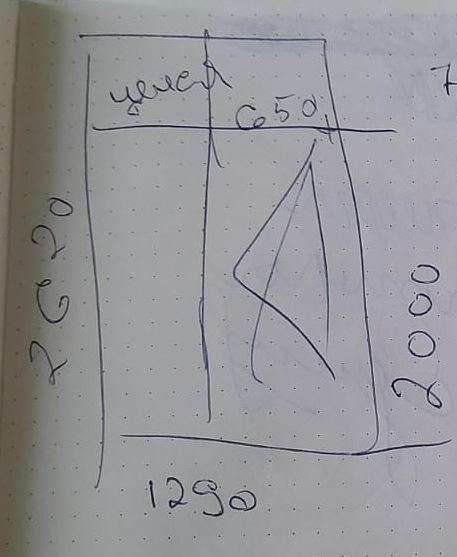 650
2620
2000
1290
7